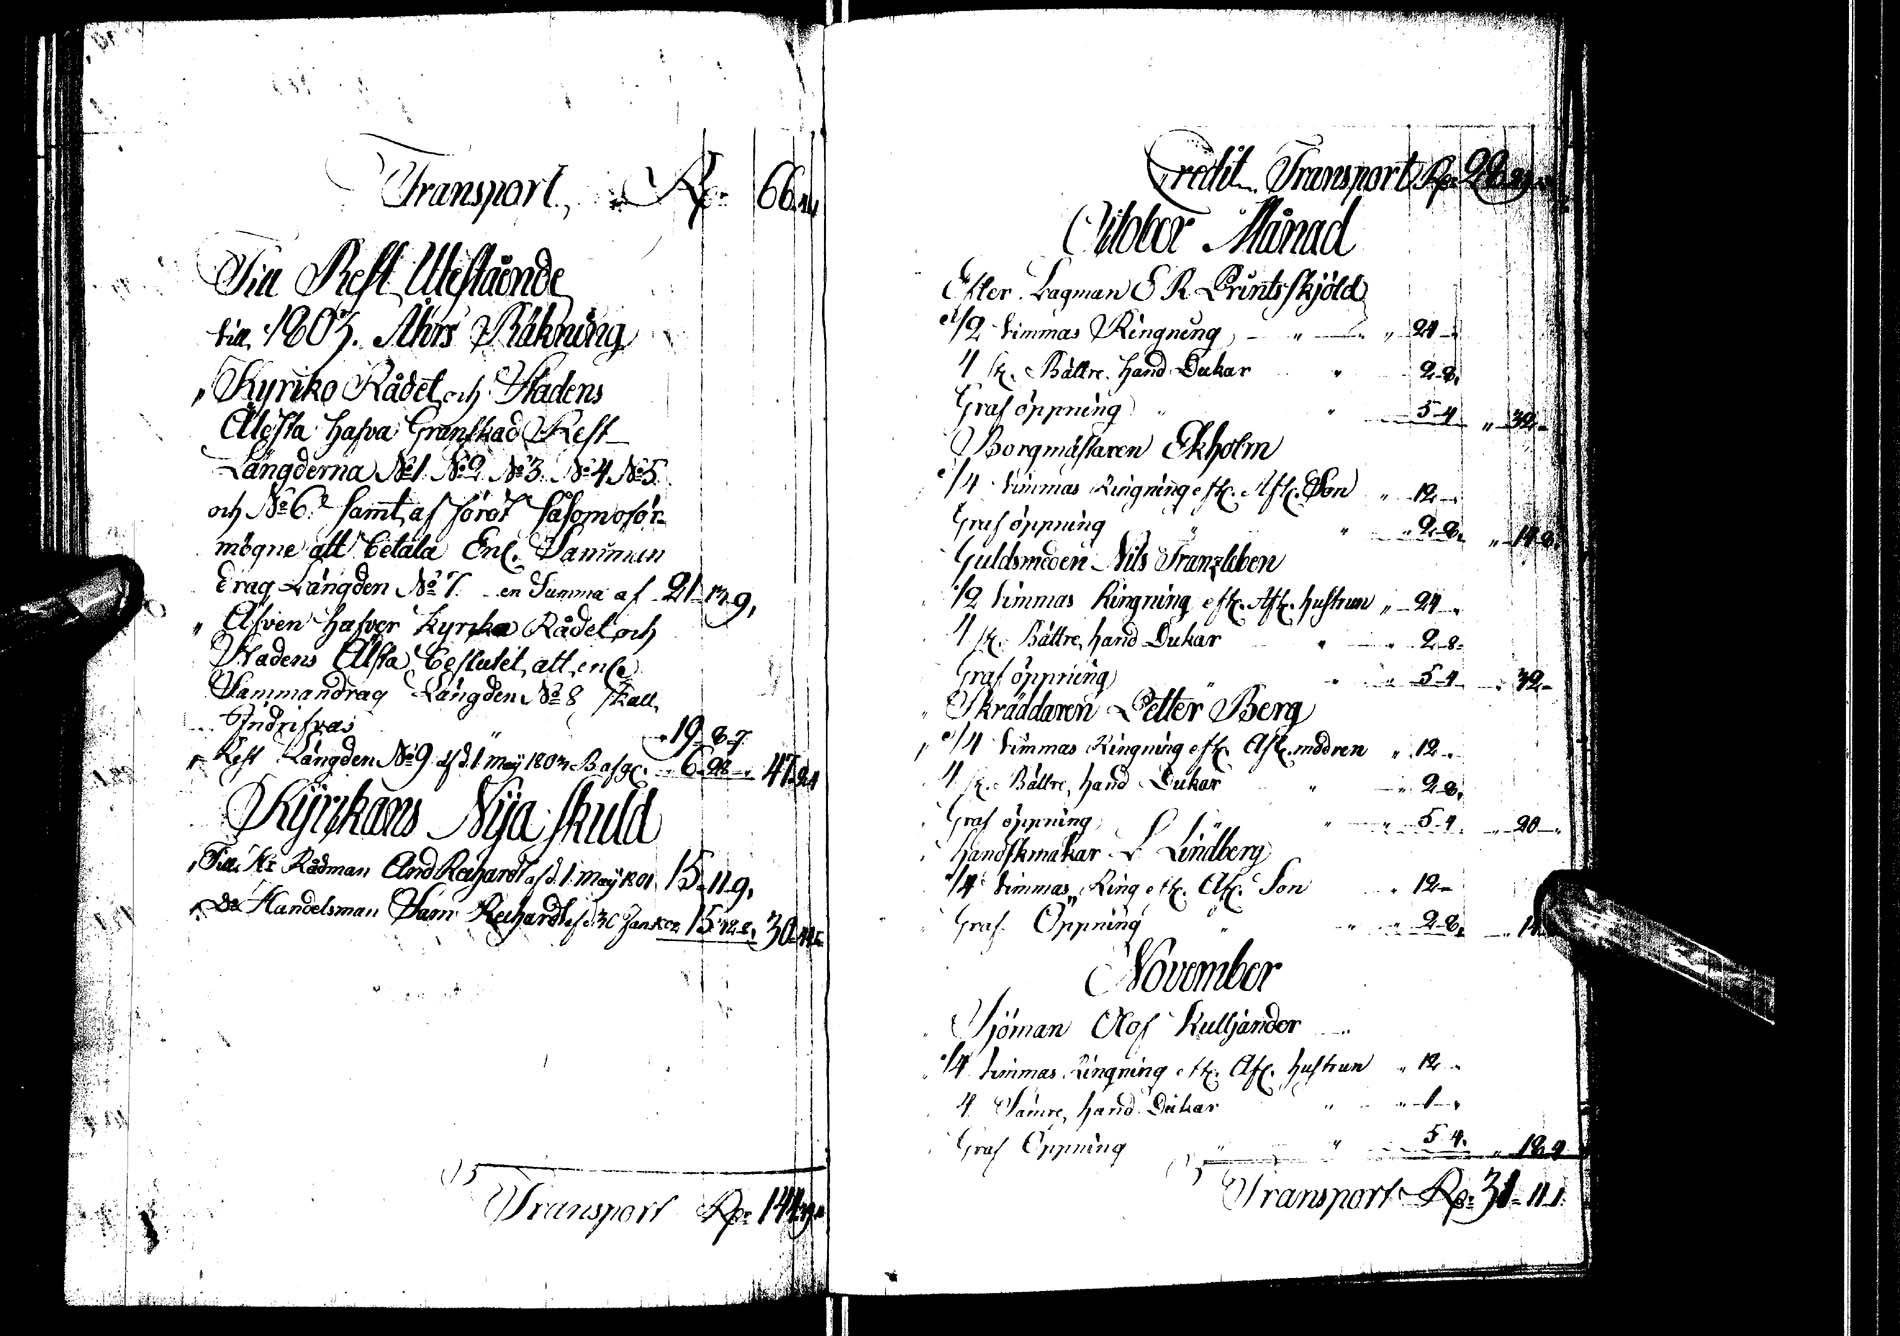 Transport, Rdr 66
Till Rest Utestående
till 1803. Åhrs Räkning
" Kyriko Rådet och Stadens
Älsta hafva Granskad Rest
Längderna No1. No2. No3. No4. No5.
och No6. samt af
mögne att betala Enl. Samman
drag Längden No 7. en Summa af 21 9,
" Äfven hafver Kyrko Rådet och
Stadens Älsta beslutit att enl.
Sammandrag Längden No 8 skall
Indrifvas " 19-8-7.
" Rest Längden No 9 af d. 1 maÿ 1803 6-28- 47-24
Kÿrkans Nÿa skuld
" Till Hr Rådman And Reihardt af d. 1 maÿ 1801 15-11-9,
" Do Handelsman Sam Reihardt af d. 30 15- 30
Transport Rdr 144
Credit Transport Rdr 28
October Månad
Efter Lagman E R Printsskjöld
1/2 timmas Ringning " " 24 -
4 st. Bättre hand Dukar " 2-8.
Graf öppning " " 5-4 " 32-
Borgmästaren Ekholm
1/4 timmas Ringning eft. Afl. Son " 12 -
Graf öppning " " 2-8. " 14-8.
Guldsmeden Nils Frantzleben
1/2 timmas Ringning eft. Afl. hustrun " 24 -
4 st. Bättre hand Dukar " 2-8-
Graf öppning " " 5-4 " 32-
Skräddaren Petter Berg
1/4 timmas Ringning eft. Afl. modren " 12 -
4 st. Bättre hand Dukar " 2-8.
Graf öppning " " 5-4 " 20-
Handskmakar L Lindberg
1/4 timmas Ring eft. Afl. Son " 12-
Graf Öppning " " 2-8. " 14
November
Sjöman Olof Kulljander
1/4 timmas Ringning eft. Afl. hustrun " 12 -
4 Sämre hand Dukar " " 1 -
Graf Öppning " " 5-4. " 18-4
Transport Rdr 31-11-1.